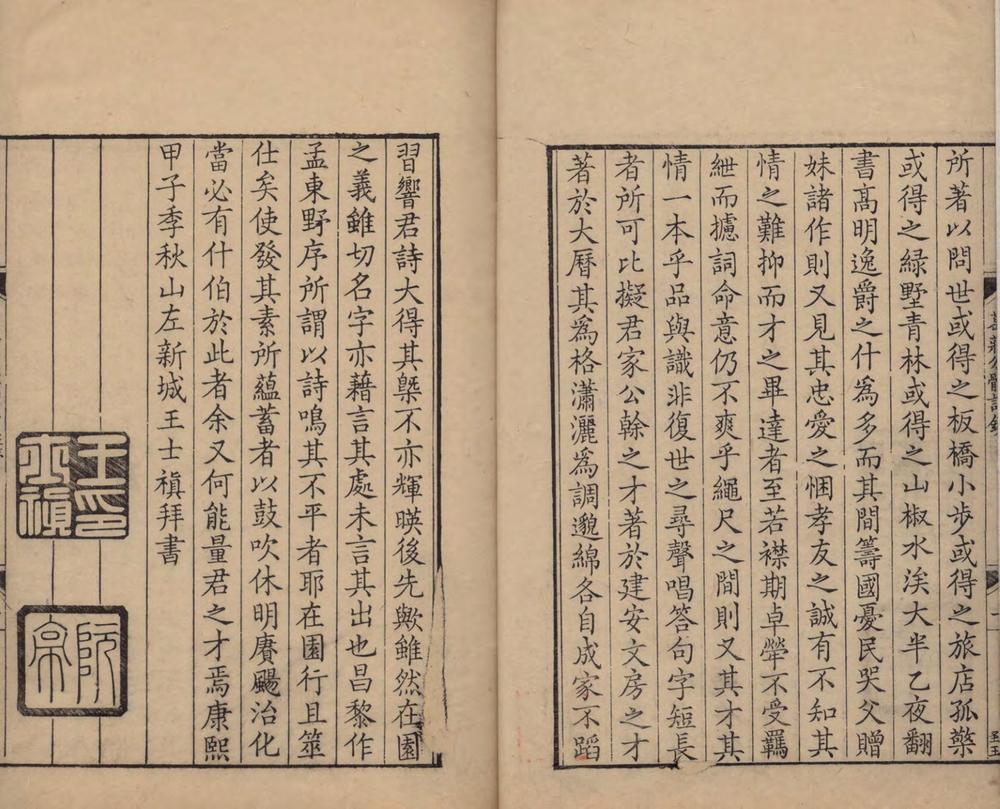 所著以問世或得之板橋小步或得之旅店孤檠
或得之綠墅青林或得之山椒水涘大半乙夜翻
書高明逸爵之什為多而其間籌國憂民哭父贈
妹諸作則又見其忠愛之悃孝友之誠有不知其
情之難抑而才之畢達者至若襟期卓犖不受羈
紲而攄詞命意仍不爽乎繩尺之間則又其才其
情一本乎品與識非復世之尋聲唱答句字短長
者所可比擬君家公幹之才著於建安文房之才
著於大曆其為格瀟灑為調邈綿各自成家不蹈
習響君詩大得其槩不亦輝暎後先歟雖然在園
之義雖切名字亦藉言其處未言其出也昌黎作
孟東野序所謂以詩鳴其不平者耶在園行且筮
仕矣使發其素所蘊蓄者以鼓吹休明賡颺治化
當必有什伯於此者余又何能量君之才焉康熙
甲子季秋山左新城王士禛拜書
王士禛印
阮亭